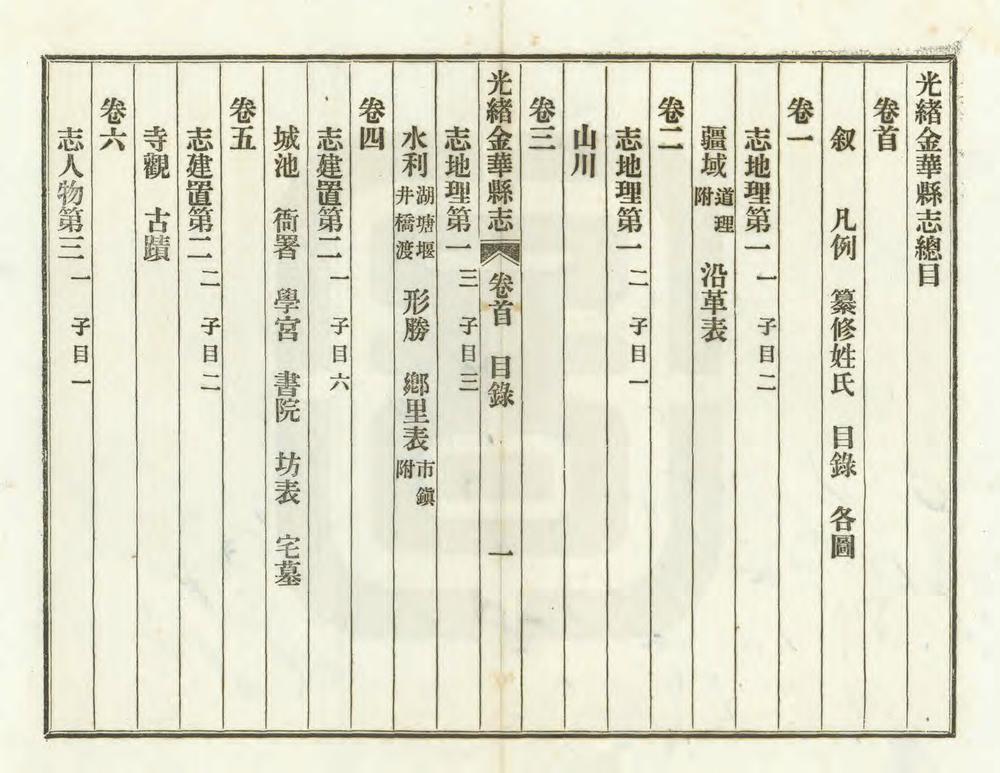 光緒金華縣志總目
卷首
叙 凡例 纂修姓氏 目錄 各圖
卷一
志地理第一 一 子目二
疆域 道理附 沿革表
卷二
志地理第一 二 子目一
山川
卷三
光緒金華縣志 卷首 目錄 一
志地理第一 三 子目三
水利 湖塘堰井橋渡 形勝 鄉里表 市鎮附
卷四
志建置第二 一 子目六
城池 衙署 學宮 書院 坊表 宅墓
卷五
志建置第二 二 子目二
寺觀 古蹟
卷六
志人物第三 一 子目一